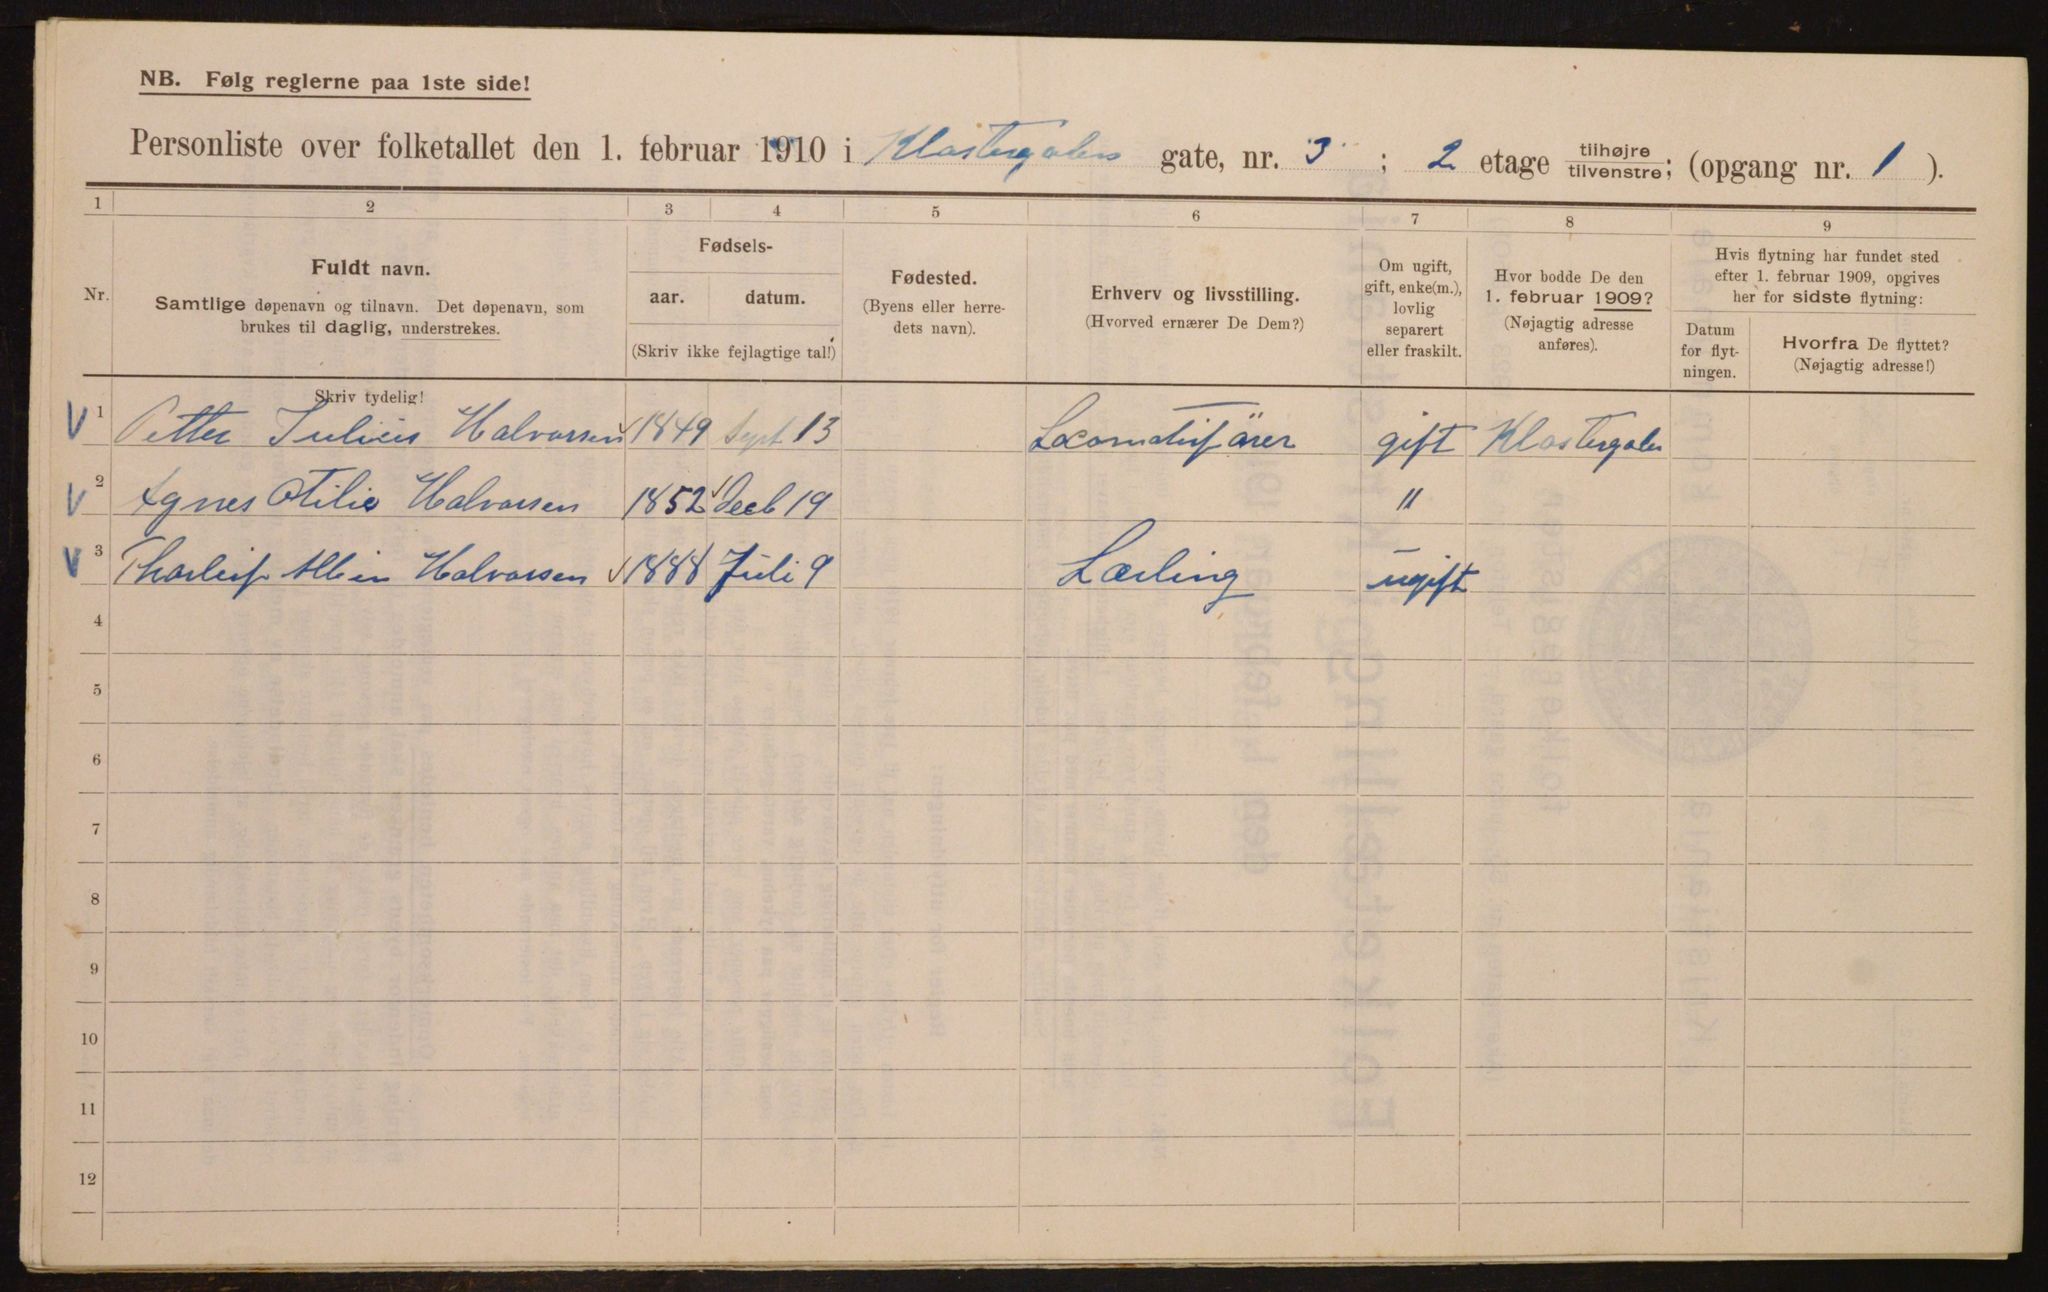 NB. Følg reglerne paa 1ste side!
Personliste over folketallet den 1. februar 1910 i Klostergaten gate, nr. 3 ; 2 etage tilhøjre tilvenstre; (opgang nr. 1 ).
1 2 3 4 5 6 7 8 9
Nr.
Fuldt navn.
Samtlige døpenavn og tilnavn. Det døpenavn, som
brukes til daglig, understrekes.
Skriv tydelig!
Fødsels-
aar. datum.
(Skriv ikke fejlagtige tal!)
Fødested.
(Byens eller herre-
dets navn).
Erhverv og livsstilling.
(Hvorved ernærer De Dem?)
Om ugift,
gift, enke(m.),
lovlig
separert
eller fraskilt.
Hvor bodde De den
1. februar 1909?
(Nøjagtig adresse
anføres).
Hvis flytning har fundet sted
efter 1. februar 1909, opgives
her for sidste flytning:
Datum
for flyt-
ningen.
Hvorfra De flyttet?
(Nøjagtig adresse!)
V 1 Petter Julius Halvorsen 1849 Sept 13 Locomotivförer gift Klostergaten
V 2 Agnes Otilie Halvorsen 1852 Decb 19 "
V 3 Thorleif Albin Halvorsen 1888 Juli 9 Lærling ugift
4
5
6
7
8
9
10
11
12